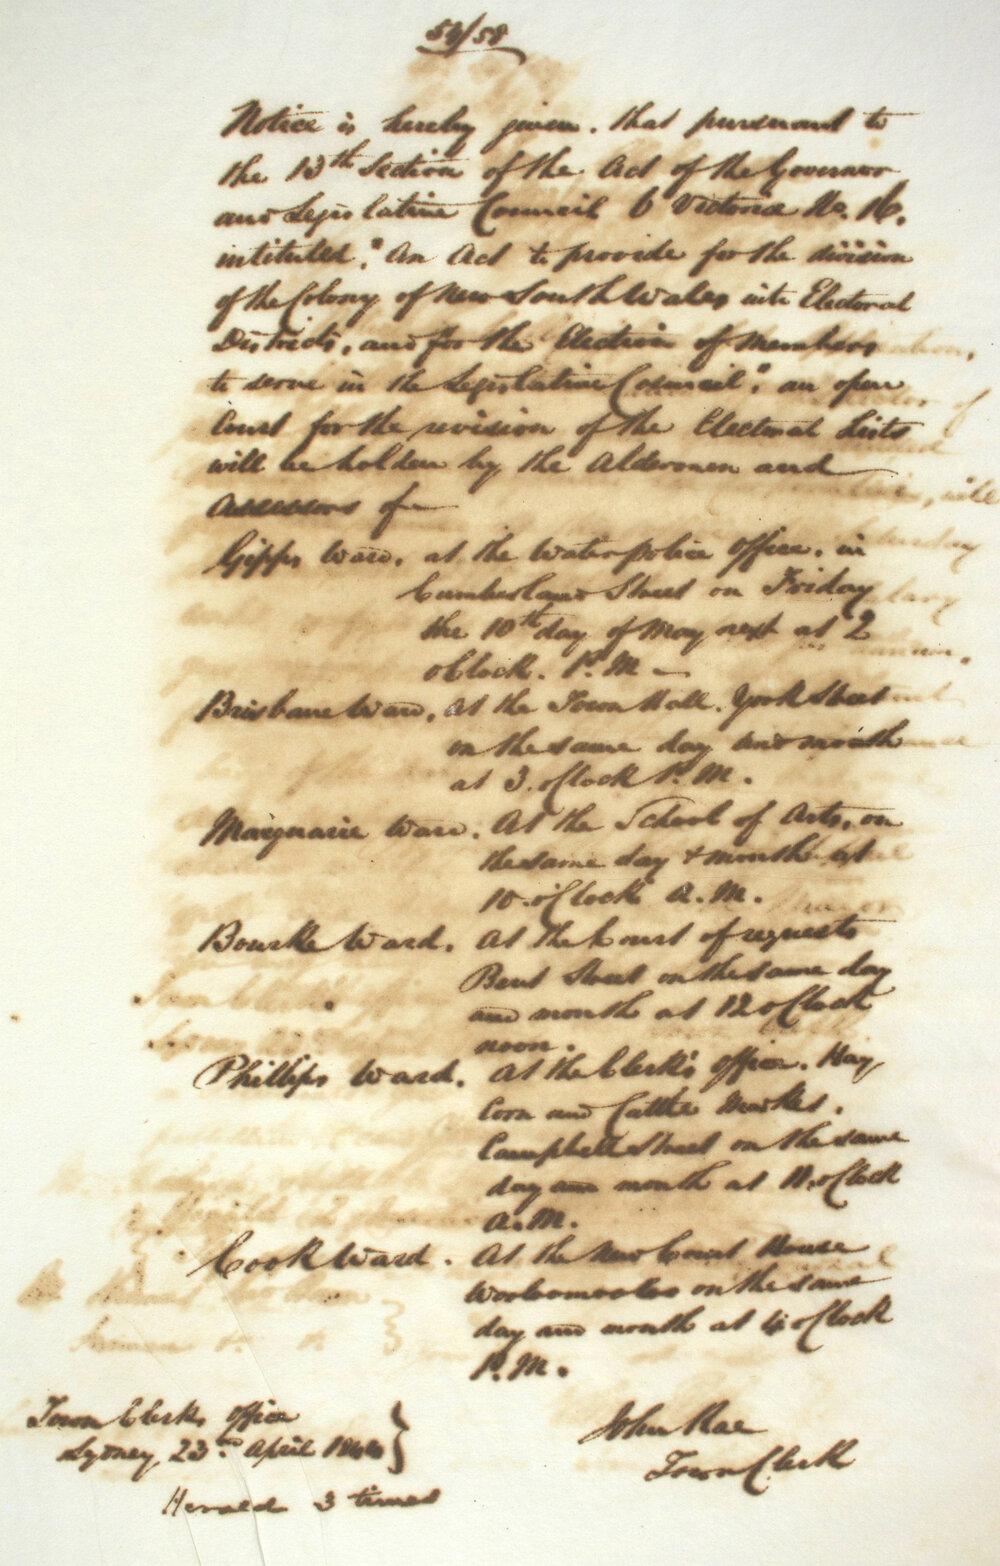 58/58
Notice is hereby given, that pursuant to
the 13th Section of the Act of the Governor
and Legislative Council 6 Victoria No. 16.
intituled, "An Act to provide for the division
of the Colony of New South Wales into Electoral
Districts, and for the Election of Members
to serve in the Legislative Council", an open
Court for the revision of the Electoral Lists
will be holden by the Aldermen and
Assessors of
Gipps Ward, at the Water police office, in
Cumberland Street on Friday
the 10th day of May next at 2
oClock. P.M —
Brisbane Ward, At the Town Hall. York Street
on the same day and month
at 3. oClock P.M.
Macquarie Ward. At the School of Arts, on
the same day & month at
10 o'Clock A.M.
Bourke Ward. At the Court of requests
Bent Street on the same day
and month at 12 oClock
noon.
Phillips Ward. At the Clerk's office. Hay
Corn and Cattle Market.
Campbell Street on the same
day and month at 11. oClock
A.M.
Cook Ward. At the New Court House
Wooloomooloo on the same
day and month at 4 oClock
P.M.
Town Clerks office
Sydney, 23rd April 1844
John Rae
Town Clerk
Herald 3 times